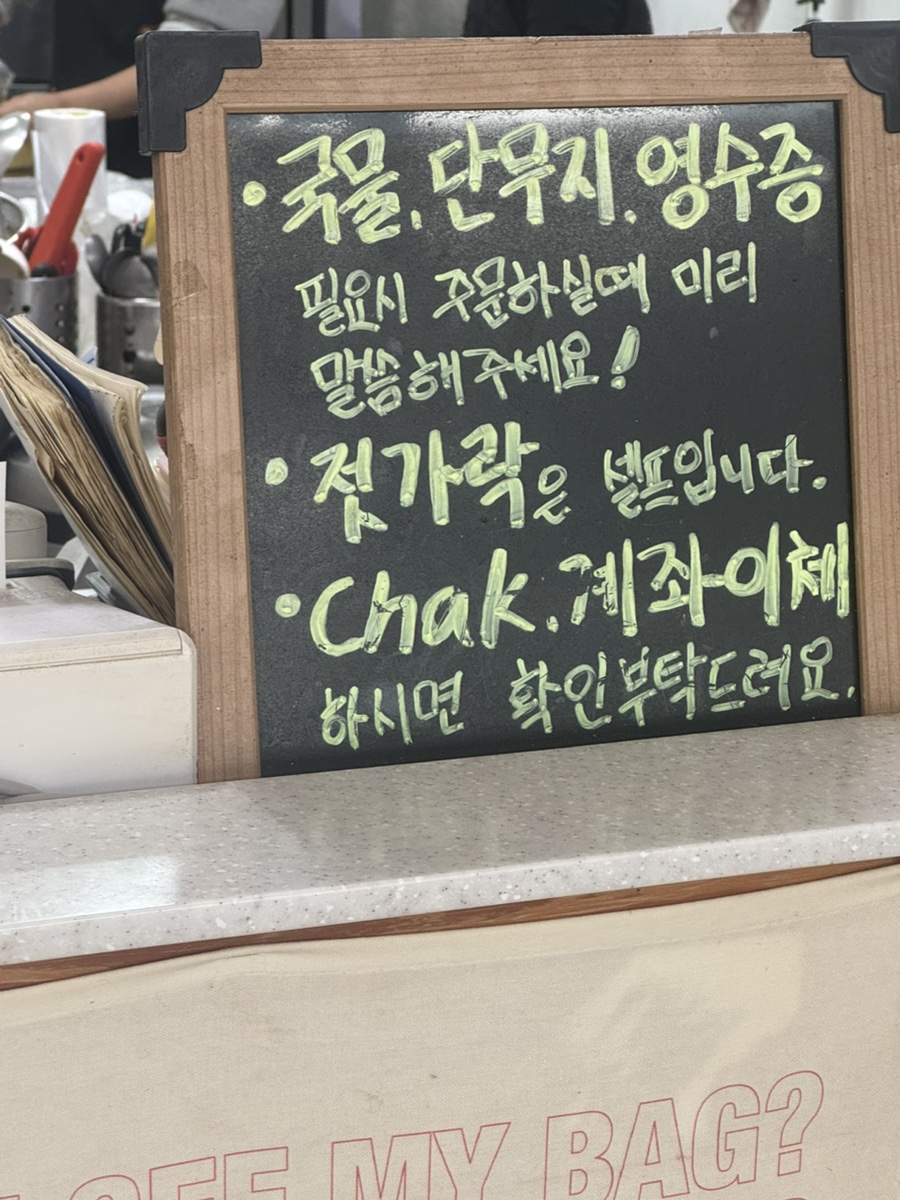 • 국물. 단무지. 영수증
필요시 주문하실때 미리
말씀해주세요!
• 젓가락은 셀프입니다.
• Chak. 계좌이체
하시면 확인부탁드려요.
MY BAG?